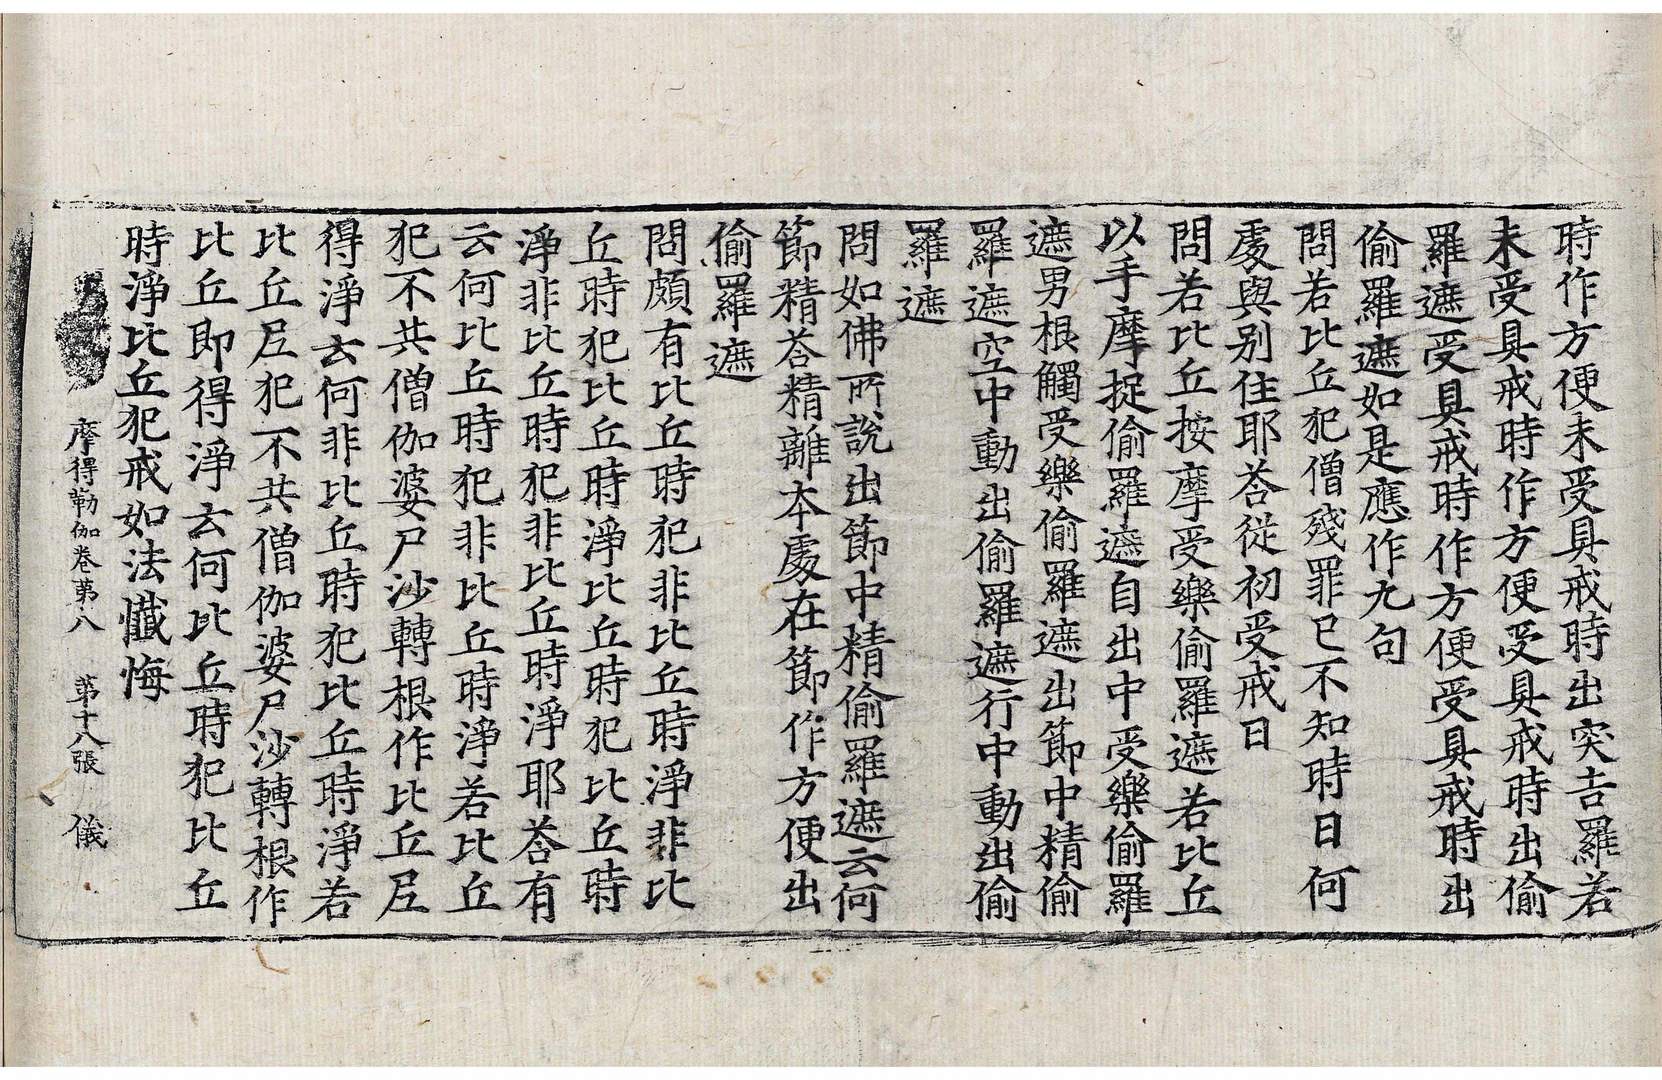 時作方便未受具戒時出突吉羅若
未受具戒時作方便受具戒時出偷
羅遮受具戒時作方便受具戒時出
偷羅遮如是應作九句
問若比丘犯僧殘罪已不知時日何
處與别住耶荅從初受戒日
問若比丘按摩受樂偷羅遮若比丘
以手摩捉偷羅遮自出中受樂偷羅
遮男根觸受樂偷羅遮出節中精偷
羅遮空中動出偷羅遮行中動出偷
羅遮
問如佛所說出節中精偷羅遮云何
節精荅精離本處在節作方便出
偷羅遮
問頗有比丘時犯非比丘時淨非比
丘時犯比丘時淨比丘時犯比丘時
淨非比丘時犯非比丘時淨耶荅有
云何比丘時犯非比丘時淨若比丘
犯不共僧伽婆尸沙轉根作比丘尼
得淨云何非比丘時犯比丘時淨若
比丘尼犯不共僧伽婆尸沙轉根作
比丘即得淨云何比丘時犯比丘
時淨比丘犯戒如法懺悔
摩得勒伽卷第八 第十八張 儀